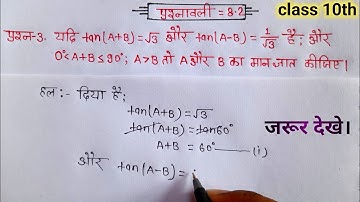 प्रश्नावली = 8.2
class 10th
प्रश्न-3. यदि tan(A+B)=√3 और tan(A-B)= 1/√3 है; और
0°<A+B≤90°; A>B तो A और B का मान ज्ञात कीजिए।
हल :- दिया है;
tan(A+B)=√3
tan(A+B)=tan60°
A+B = 60° ——(i)
जरूर देखे।
और tan(A-B)=